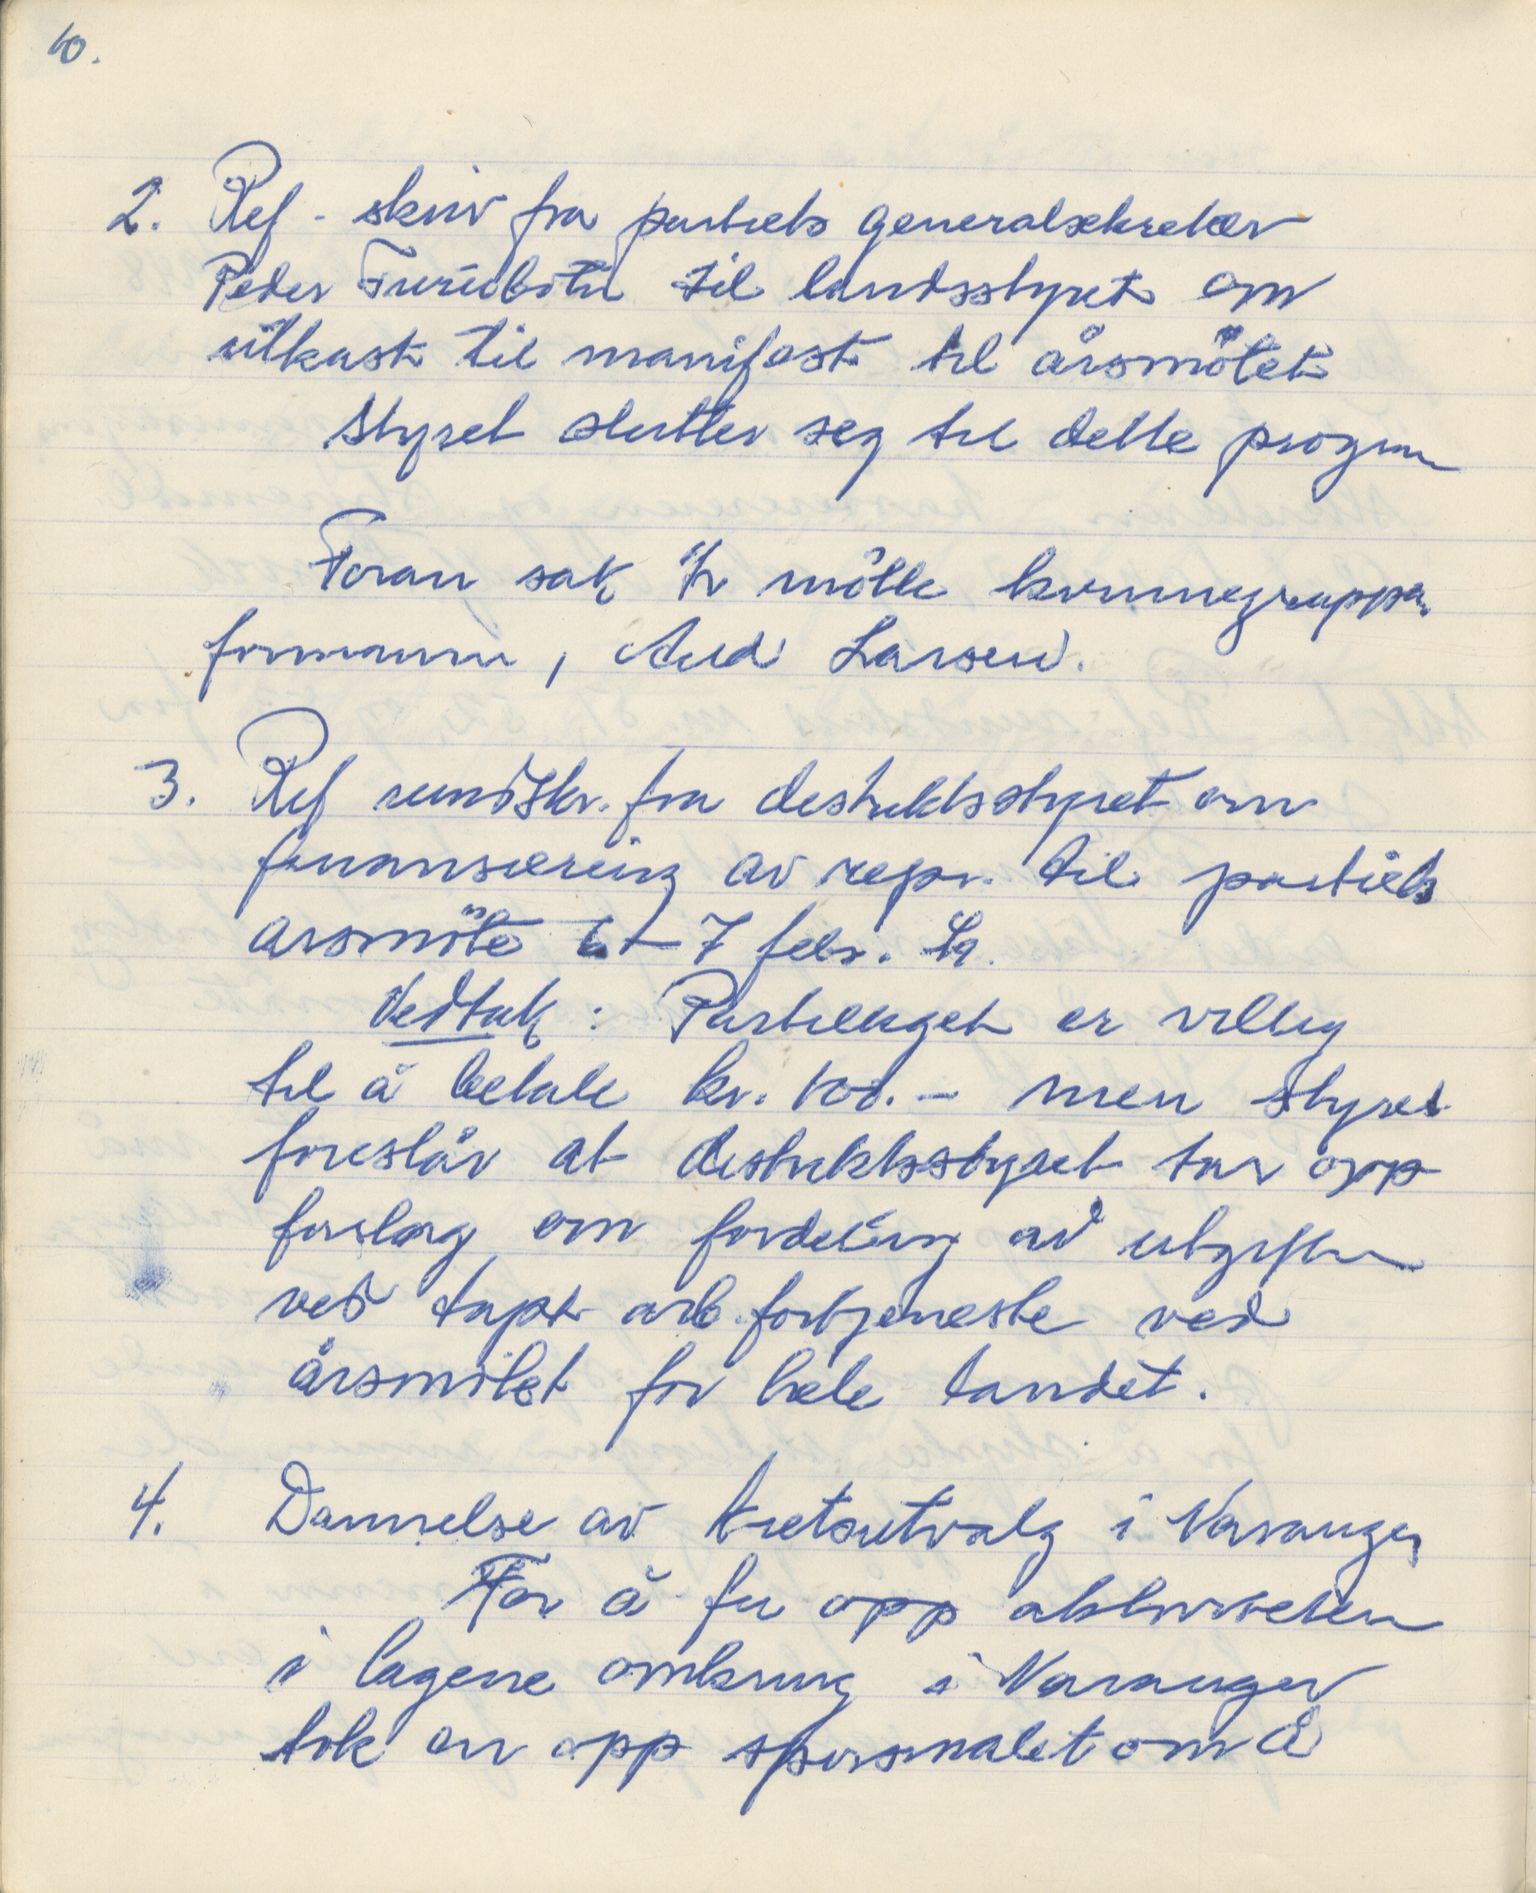 10.
2. Ref - skriv fra partiets generalsekretær
Peder Furubotn til landsstyret om
utkast til manifest til årsmötet
Styret slutter seg til dette program
Foran sak 2 mötte kvinnegruppas
formann, Aud Larsen.
3. Ref rundskr. fra destriktsstyret om
finansiering av repr. til partiets
årsmöte 7 febr.
Vedtak: Partilaget er villig
til å betale kr. 100.- men styret
foreslår at destriktsstyret tar opp
forslag om fordeling av utgiften
ved tapt arb.fortjeneste ved
årsmötet for hele landet.
4. Dannelse av kretsutvalg i Varanger
For å få opp aktiviteten
i lagene omkring i Varanger
tok en opp spørsmålet om å